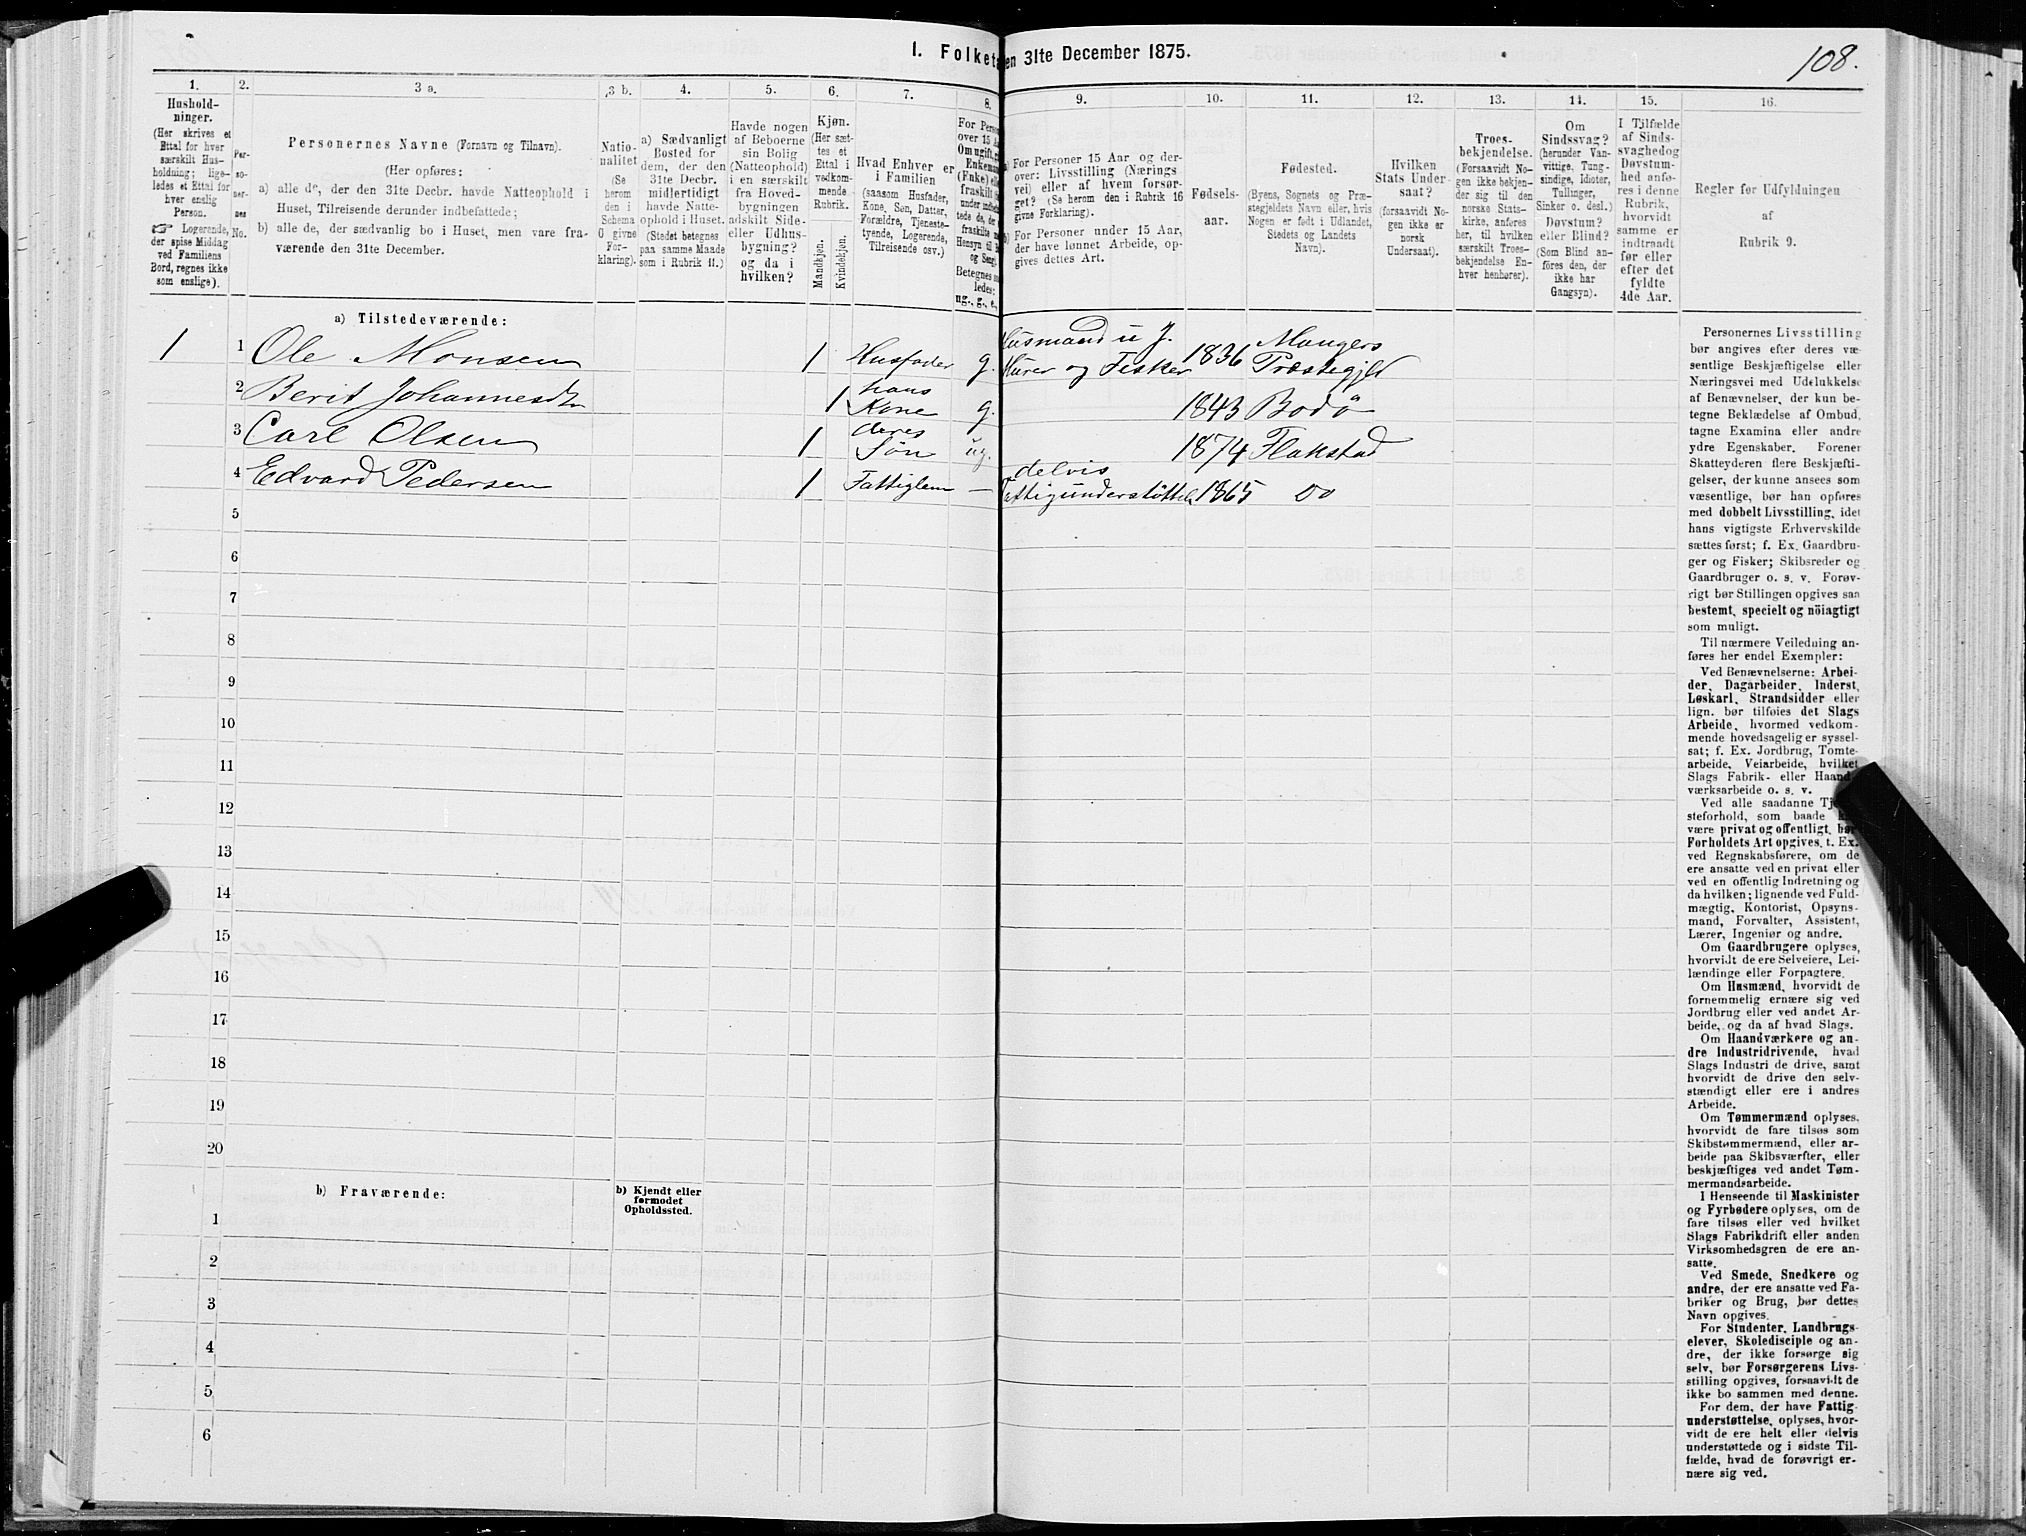 108.
1. Folketæ
en 31te December 1875.
1. 2. 3 a. 3 b. 4. 5. 6. 7. 8. 9. 10. 11. 12. 13. 14. 15. 16.
Hushold-
ninger.
(Her skrives et
Ettal for hver
særskilt Hus-
holdning; lige-
ledes et Ettal for
hver enslig
Person.
☞ Logerende,
der spise Middag
ved Familiens
Bord, regnes ikke
som enslige).
Per-
so-
ner-
nes
No.
Personernes Navne (Fornavn og Tilnavn).
(Her opføres:
a) alle de, der den 31te Decbr. havde Natteophold i
Huset, Tilreisende derunder indbefattede;
b) alle de, der sædvanlig bo i Huset, men vare fra-
værende den 31te December.
Natio-
nalitet
(Se
herom
den i
Schema
O givne
For-
klaring).
a) Sædvanligt
Bosted for
dem, der den
31te Decbr.
midlertidigt
havde Natte-
ophold i Huset.
(Stedet betegnes
paa samme Maade
som i Rubrik 11.)
Havde nogen
af Beboerne
sin Bolig
(Natteophold)
i en særskilt
fra Hoved-
bygningen
adskilt Side-
eller Udhus-
bygning?
og da i
hvilken?
Kjøn.
(Her sæt-
tes et
Ettal i
vedkom-
mende
Rubrik.
Mandkjøn.
Kvindekjøn.
Hvad Enhver er
i Familien
(saasom Husfader,
Kone, Søn, Datter,
Forældre, Tjeneste-
tyende, Logerende,
Tilreisende osv.)
For Perso
over 15 A
Om ugift, g
Enkeman
(Fnke) el
fraskilt
under indbe
tede de, der
fraskilte
Hensyn til B
og Seng).
Betegnes s
ledes:
ug., g., e.,
a) For Personer 15 Aar og der-
over: Livsstilling (Nærings
vei) eller af hvem forsør-
get? (Se herom den i Rubrik 16
givne Forklaring).
b) For Personer under 15 Aar,
der have lønnet Arbeide, op-
gives dettes Art.
Fødsels-
aar.
Fødested.
(Byens, Sognets og Præ-
stegjeldets Navn eller, hvis
Nogen er født i Udlandet,
Stedets og Landets
Navn).
Hvilken
Stats Under-
saat?
(forsaavidt No-
gen ikke er
norsk
Undersaat).
Troes-
bekjendelse.
(Forsaavidt No-
gen ikke bekjen-
der sig til den
norske Stats-
kirke, anføres
her, til hvilken
særskilt Troes-
bekjendelse En-
hver henhører).
Om
Sindssvag?
(herunder Van-
vittige, Tung-
sindige, Idioter,
Tullinger,
Sinker o. desl.)
Døvstum?
eller Blind?
(Som Blind an-
føres den, der
ikke har
Gangsyn).
I Tilfælde
af Sinds-
svaghed og
Døvstum-
hed anfø-
res i denne
Rubrik,
hvorvidt
samme er
indtraadt
før eller
efter det
fyldte
4de Aar.
Regler for Udfyldningen
af
Rubrik 9.
a) Tilstedeværende:
1 1 Ole Monsen 1 Husfader g. Husmand u J. Hurer og Fisker 1836 Mangers Præstegjld
2 Berit Johannesdtr 1 hans Kone g. 1843 Bodø
3 Carl Olsen 1 deres Søn ug. 1874 Flakstad
4 Edvard Pedersen 1 Fattiglem — delvis Fattigunderstøttet 1865 Do
5
6
7
8
9
10
11
12
13
14
15
16
17
18
19
20
b) Fraværende:
b) Kjendt eller
formodet
Opholdssted.
1
2
3
4
5
6
Personernes Livsstilling
bør angives efter deres væ-
sentlige Beskjæftigelse eller
Næringsvei med Udelukkelse
af Benævnelser, der kun be-
tegne Beklædelse af Ombud,
tagne Examina eller andre
ydre Egenskaber. Forener
Skatteyderen flere Beskjæfti-
gelser, der kunne ansees som
væsentlige, bør han opføres
med dobbelt Livsstilling, idet
hans vigtigste Erhvervskilde
sættes først; f. Ex. Gaardbru-
ger og Fisker; Skibsreder og
Gaardbruger o. s. v. Forøv-
rigt bør Stillingen opgives saa
bestemt, specielt og nöiagtigt
som muligt.
Til nærmere Veiledning an-
føres her endel Exempler:
Ved Benævnelserne: Arbei-
der, Dagarbeider, Inderst,
Løskarl, Strandsidder eller
lign. bør tilføies det Slags
Arbeide, hvormed vedkom-
mende hovedsagelig er syssel-
sat; f. Ex. Jordbrug, Tomte-
arbeide, Veiarbeide, hvilket
Slags Fabrik- eller Haand-
værksarbeide o. s. v.
Ved alle saadanne Tje
steforhold, som baade k
være privat og offentligt, bør
Forholdets Art opgives, t. Ex.
ved Regnskabsførere, om de
ere ansatte ved en privat eller
ved en offentlig Indretning og
da hvilken; lignende ved Fuld-
mægtig, Kontorist, Opsyns-
mand, Forvalter, Assistent,
Lærer, Ingeniør og andre.
Om Gaardbrugere oplyses,
hvorvidt de ere Selveiere, Lei-
lændinge eller Forpagtere.
Om Husmænd, hvorvidt de
fornemmelig ernære sig ved
Jordbrug eller ved andet Ar-
beide, og da af hvad Slags.
Om Haandværkere og an-
dre Industridrivende, hvad
Slags Industri de drive, samt
hvorvidt de drive den selv-
stændigt eller ere i andres
Arbeide.
Om Tømmermænd oplyses,
hvorvidt de fare tilsøs som
Skibstømmermænd, eller ar-
beide paa Skibsværfter, eller
beskjæftiges ved andet Tøm-
mermandsarbeide.
I Henseende til Maskinister
og Fyrbødere oplyses, om de
fare tilsøs eller ved hvilket
Slags Fabrikdrift eller anden
Virksomhedsgren de ere an-
satte.
Ved Smede, Snedkere og
andre, der ere ansatte ved Fa-
briker og Brug, bør dettes
Navn opgives.
For Studenter, Landbrugs-
elever, Skoledisciple og an-
dre, der ikke forsørge sig
selv, bør Forsørgerens Livs-
stilling opgives, forsaavidt de
ikke bo sammen med denne.
For dem, der have Fattig-
understøttelse, oplyses, hvor-
vidt de ere helt eller delvis
understøttede og i sidste Til-
fælde, hvad de forøvrigt er-
nære sig ved.